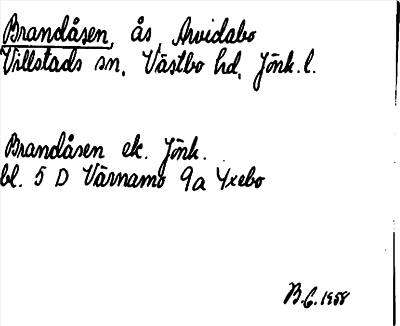 Brandåsen, ås, Arvidabo
Villstads sn, Västbo hd, Jönk.l.
Brandåsen ek. Jönk.
bl. 5 D Värnamo 9a Yxebo
B.G. 1958